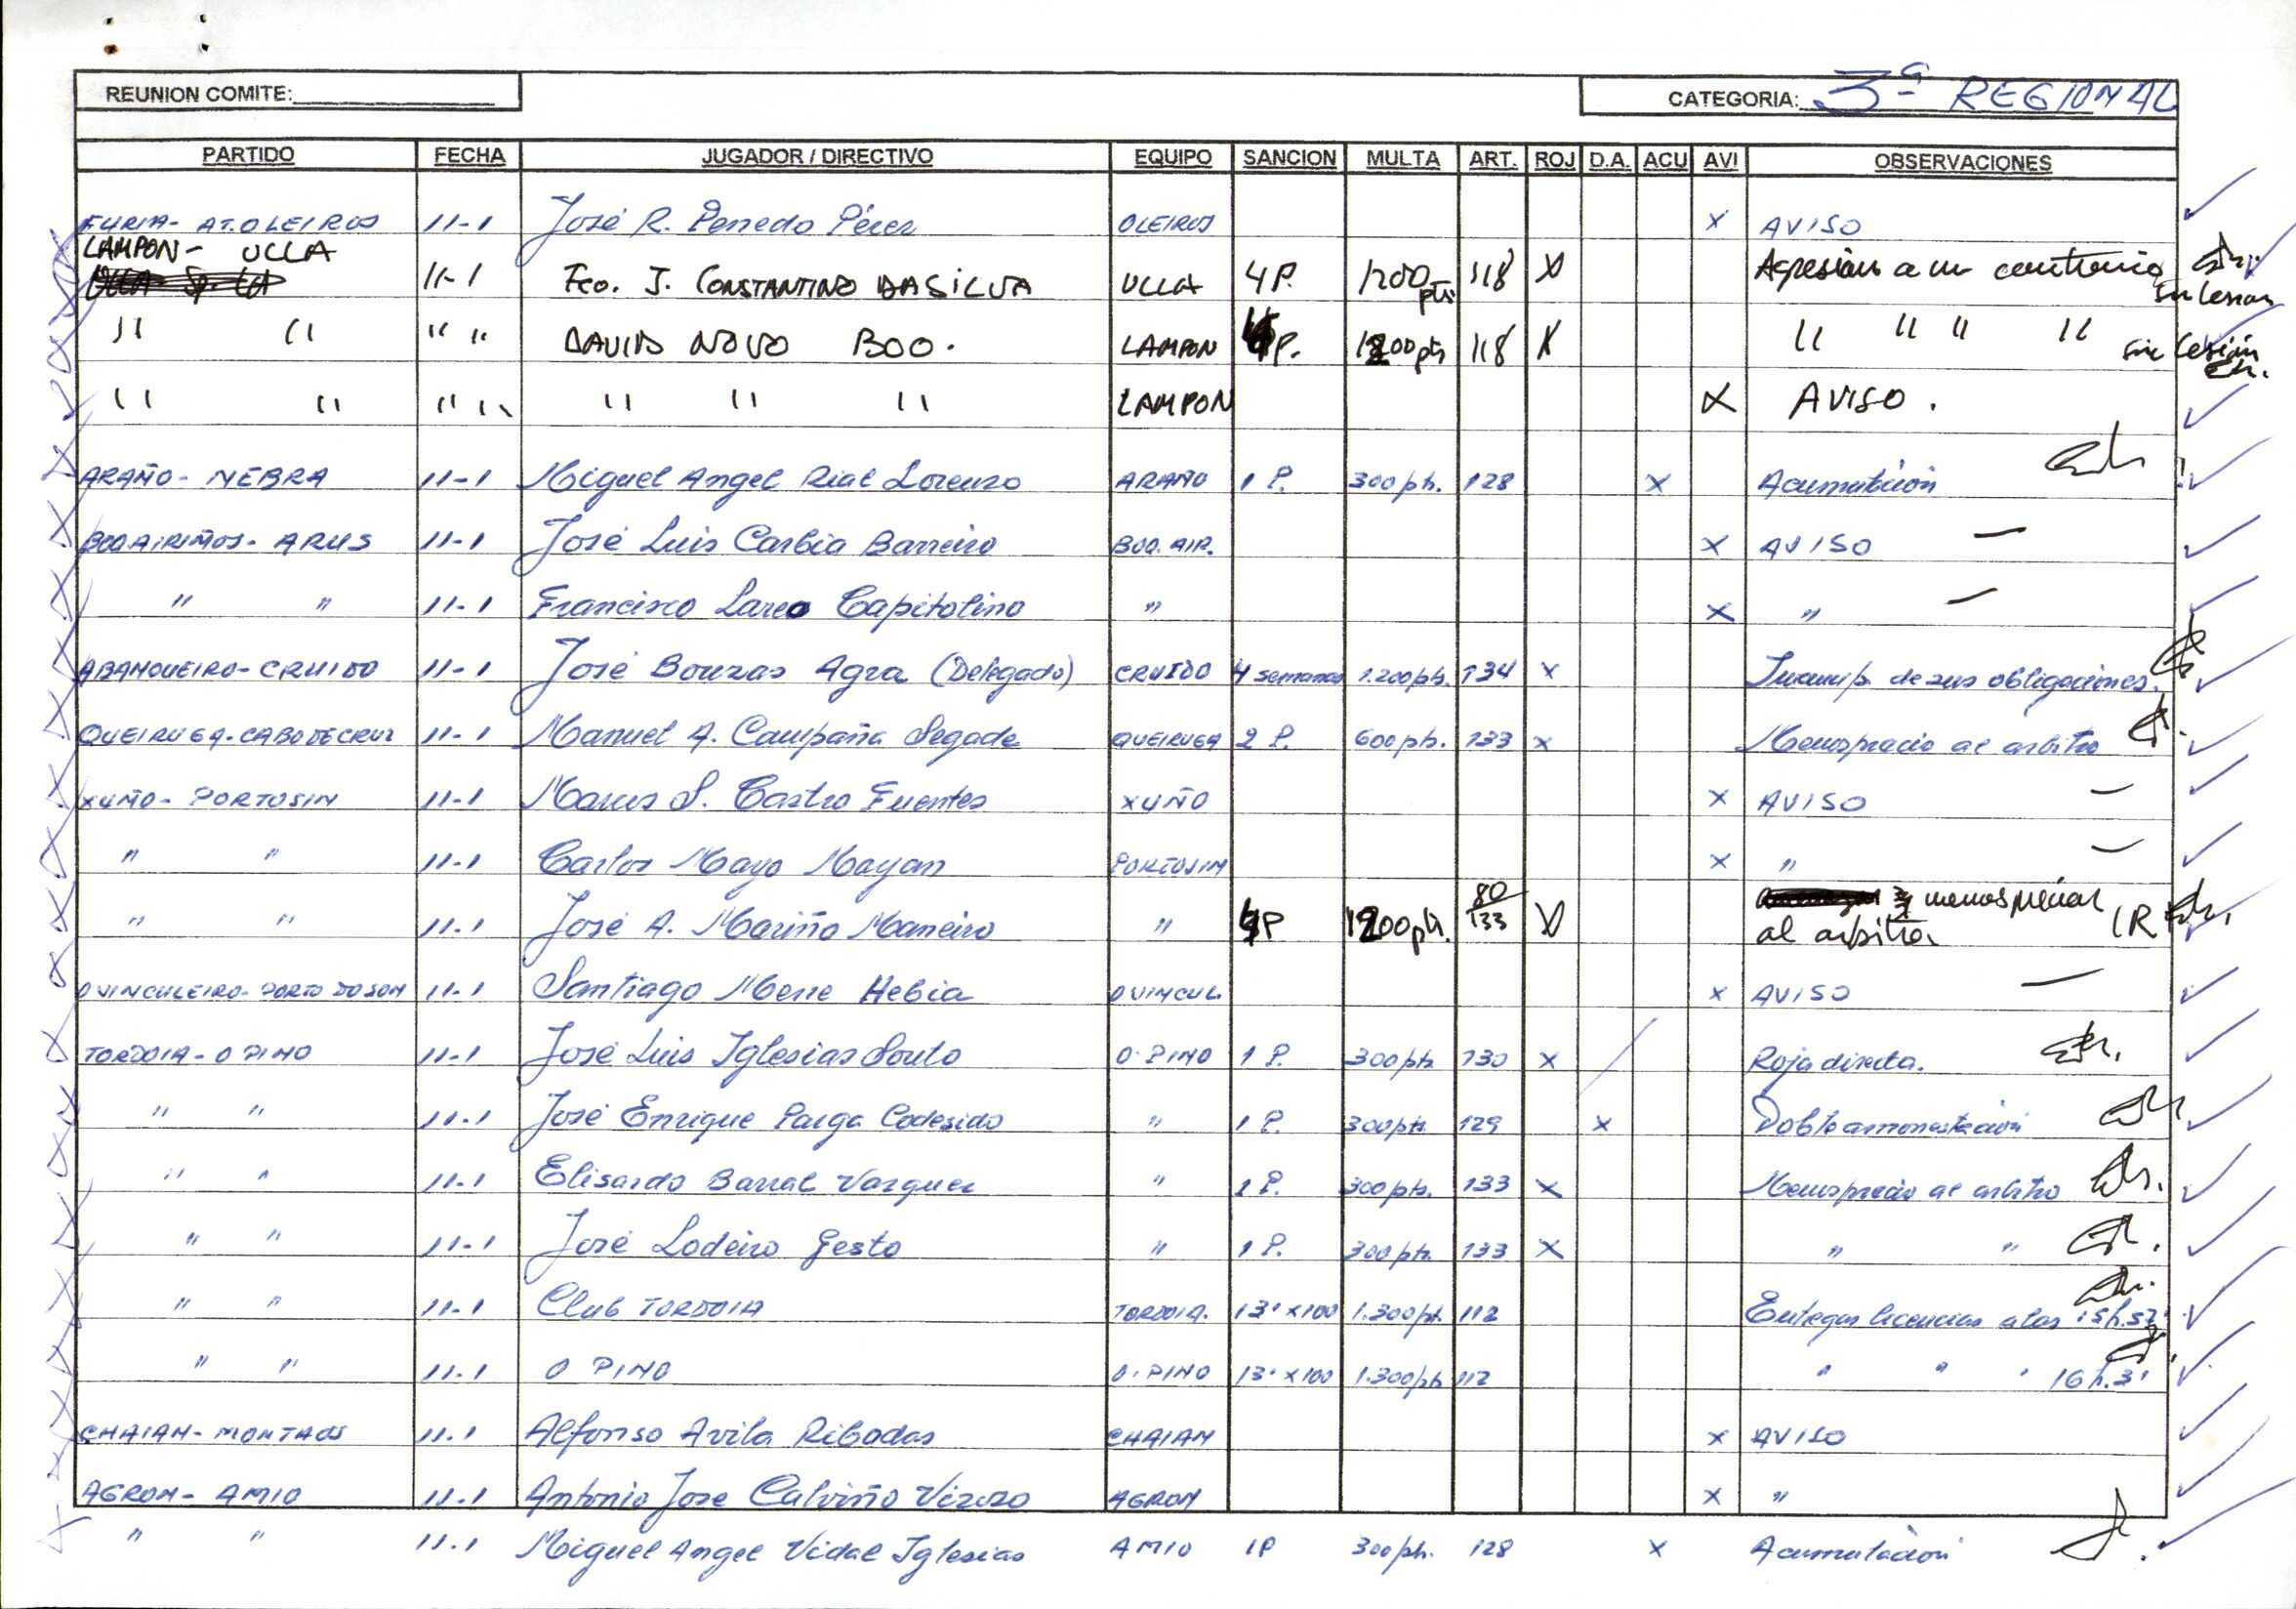 REUNION COMITE:
CATEGORIA: 3ª REGIONAL
PARTIDO FECHA JUGADOR / DIRECTIVO EQUIPO SANCION MULTA ART. ROJ D.A. ACU AVI OBSERVACIONES
FURIA- AT. OLEIROS 11-1 José R. Penedo Pérez OLEIROS x AVISO
LAMPON- ULLA 11-1 Fco. J. CONSTANTINO DASILVA ULLA 4 P. 1200 pts 118 X Agresión a un contrario sin lesion
" " " " DAVID NOVO BOO. LAMPON 4P. 1200 pts 118 X " " " " sin lesión
" " " " " " " LAMPON X AVISO.
ARAÑO- NEBRA 11-1 Miguel Angel Rial Lorenzo ARAÑO 1 P. 300 pts. 128 x Acumulación
BOO AIRIÑOS- ARUS 11-1 José Luis Carbia Barreiro BOO. AIR. x AVISO
" " 11-1 Francisco Lareo Capitolino " x "
ABANQUEIRO- CRUIDO 11-1 José Bouzas Agra (Delegado) CRUIDO 4 semanas 1.200 pts. 134 x Incump. de sus obligaciones.
QUEIRUGA- CABO DE CRUZ 11-1 Manuel A. Campaña Segade QUEIRUGA 2 P. 600 pts. 133 x Menosprecio al arbitro
XUÑO- PORTOSIN 11-1 Marcos S. Castro Fuentes XUÑO x AVISO
" " 11-1 Carlos Mayo Mayan PORTOSIN x "
" " 11-1 José A. Mariño Maneiro " 4P 1200 pts. 80/133 X al arbitro
O VINCULEIRO- PORTO DO SON 11-1 Santiago Mene Hebia O VINCUL. x AVISO
TORDOIA- O PINO 11-1 José Luis Iglesias Souto O. PINO 1 P. 300 pts 130 x Roja directa.
" " 11-1 José Enrique Parga Codesido " 1 P. 300 pts 129 x Doble amonestación
" " 11-1 Elisardo Barral Vazquez " 1 P. 300 pts. 133 x Menosprecio al arbitro
" " 11-1 José Lodeiro Gesto " 1 P. 300 pts. 133 x " "
" " 11-1 Club TORDOIA TORDOIA. 13' x 100 1.300 pts. 112 Entregar licencias a las 15 h. 57'
" " 11-1 O PINO O. PINO 13' x 100 1.300 pts 112 " " " 16 h. 3'
CHAIAN- MONTAOS 11-1 Alfonso Avila Ribadas CHAIAN x AVISO
AGRON- AMIO 11-1 Antonio Jose Calviño Vizoso AGRON x "
" " 11-1 Miguel Angel Vidal Iglesias AMIO 1P 300 pts. 128 x Acumulación